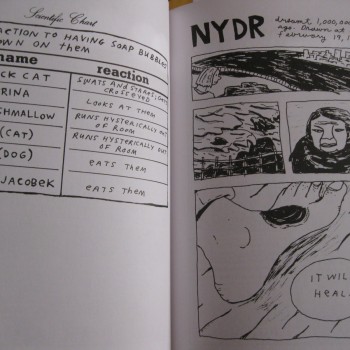 Scientific Chart
ACTION TO HAVING SOAP BUBBLES
OWN ON them
name
reaction
CK CAT
SWATS AND STARES
CROSSEYED
RINA
LOOKS AT THEM
SHMALLOW
RUNS HYSTERICALLY OUT
OF ROOM
(CAT)
RUNS HYSTERICALLY OUT
OF ROOM
(DOG)
eATS Them
JACOBEK
eATS Them
NYDR
dreamt 1,000,000
ago. Drawn at
February 19, 1
IT WIL
HEAL